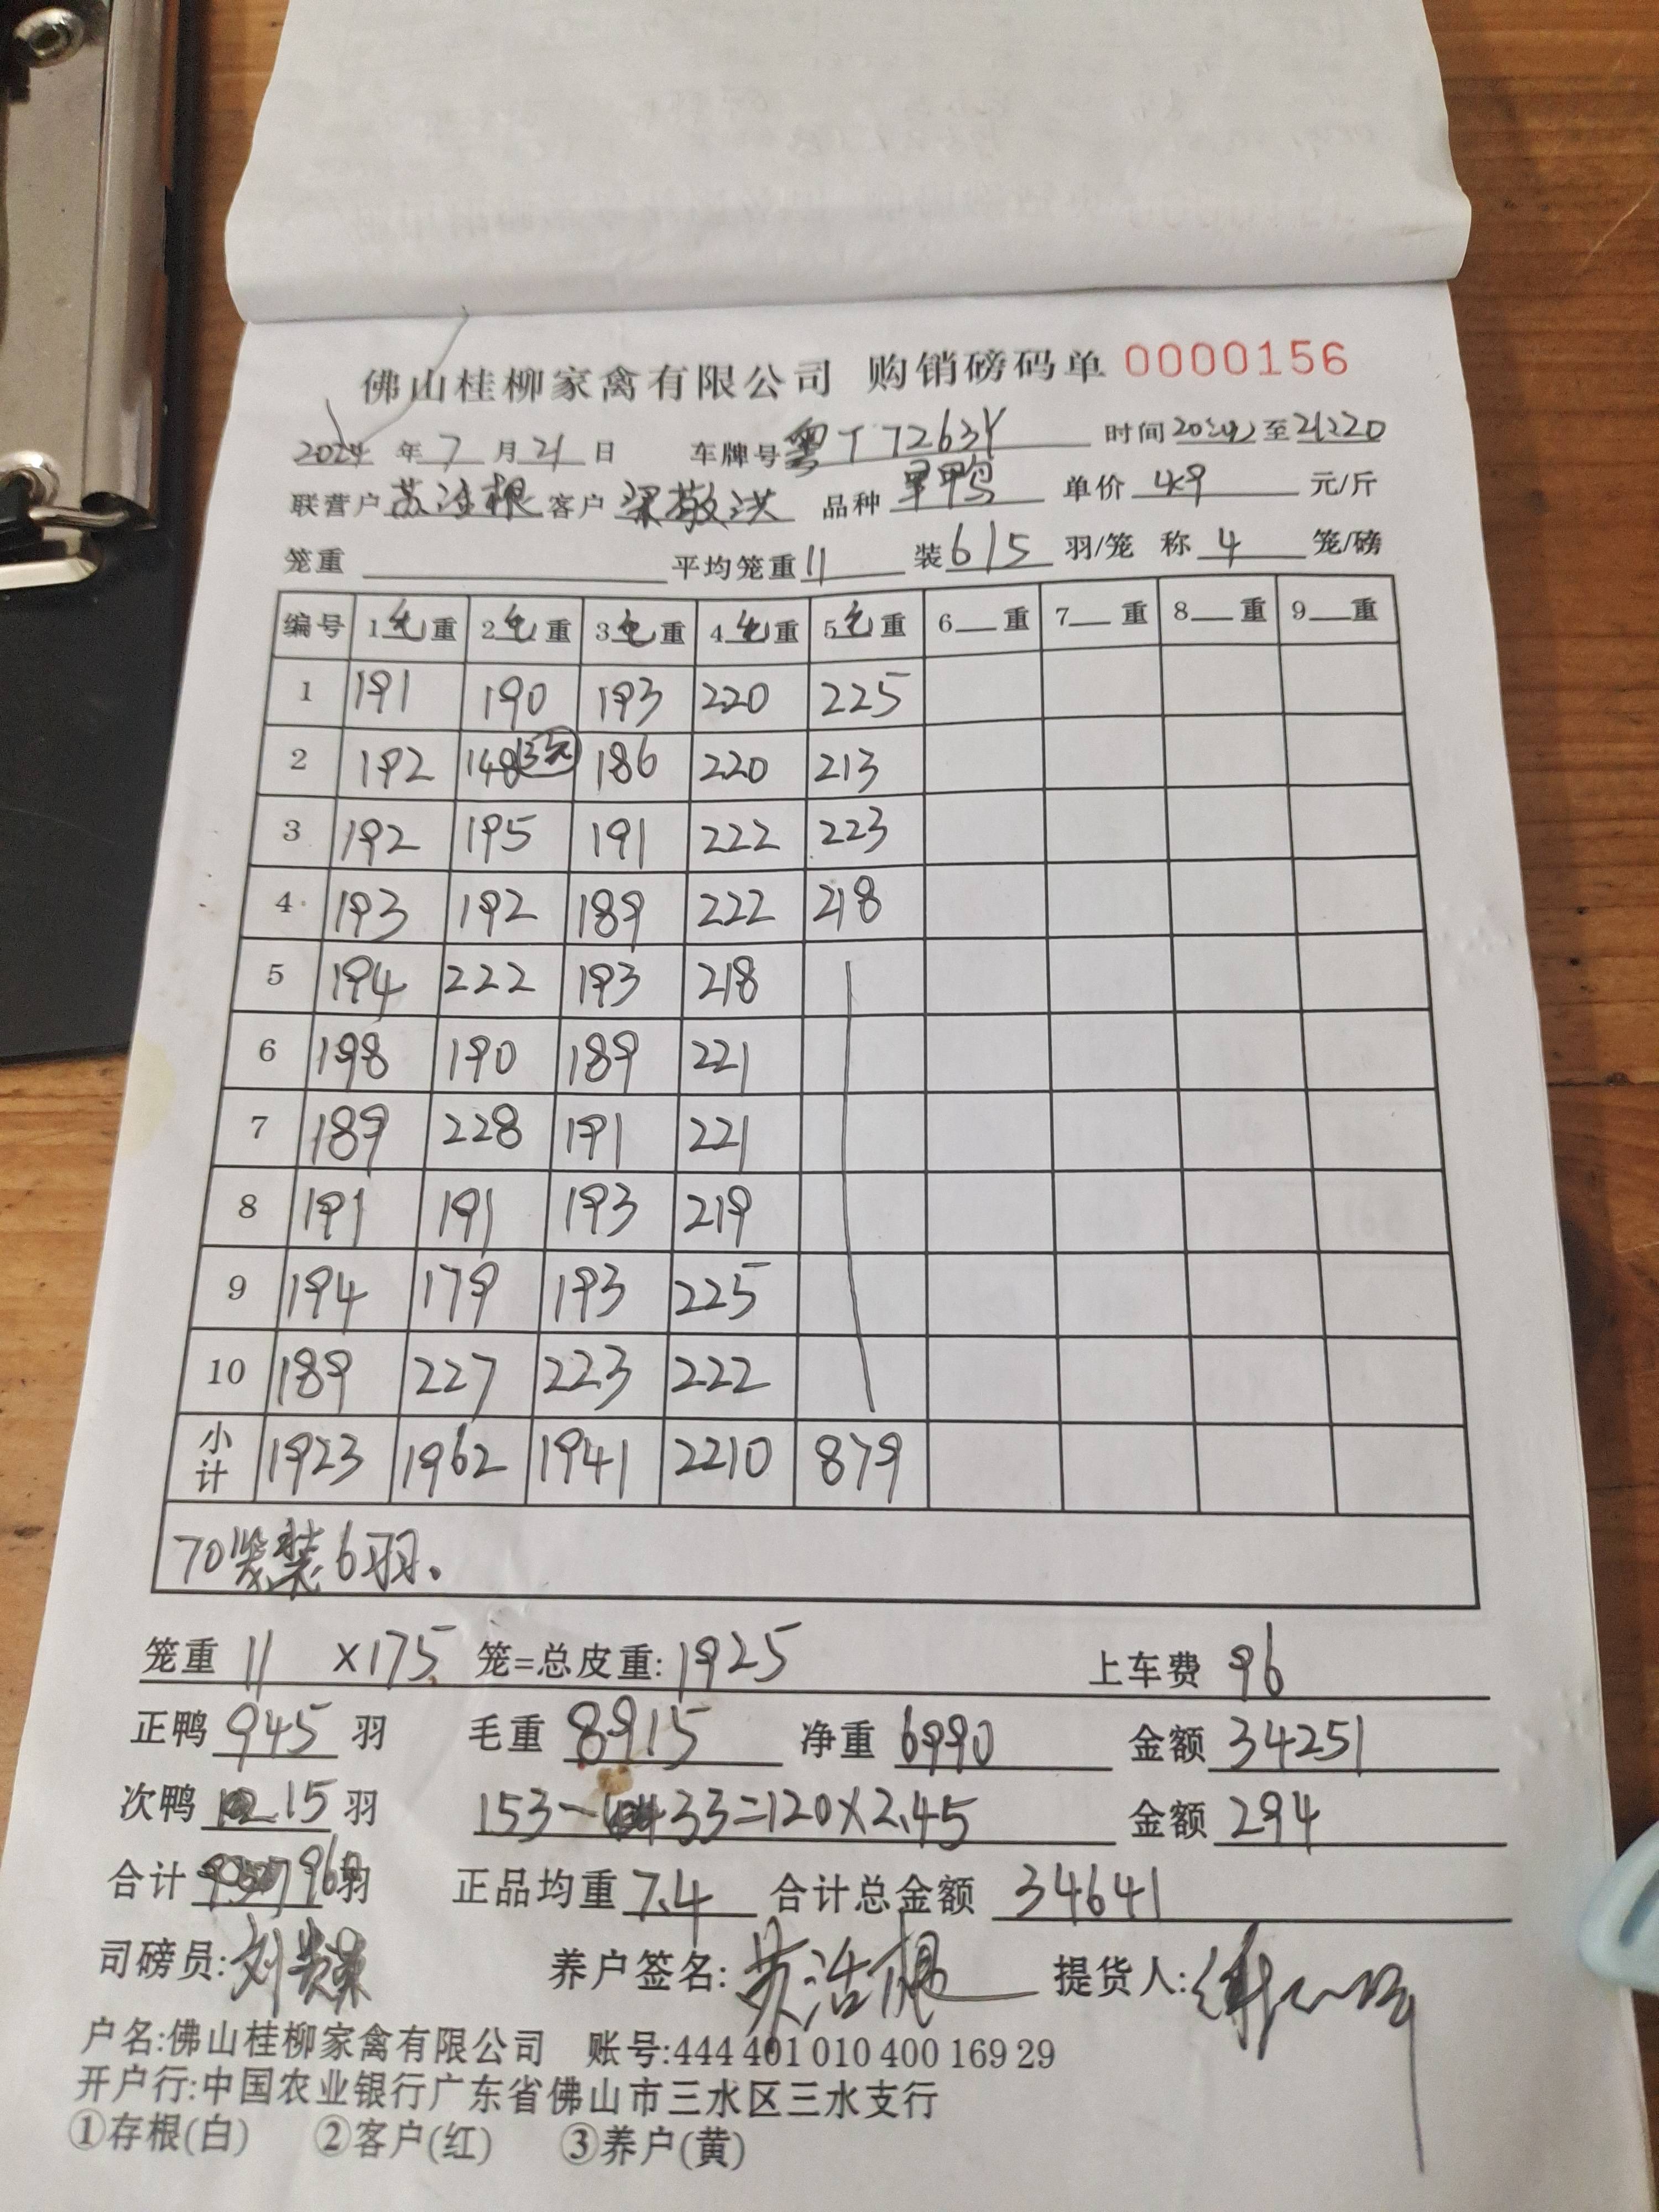 佛山桂柳家禽有限公司 购销磅码单 0000156
2024 年 7 月 21 日 车牌号 粤T7263Y 时间 至 21:20
联营户 苏浩根 客户 梁敬洪 品种 旱鸭 单价 4.9 元/斤
笼重 平均笼重 11 装 6/5 羽/笼 称 4 笼/磅
编号 1毛重 2毛重 3毛重 4毛重 5毛重 6 重 7 重 8 重 9 重
1 191 190 193 220 225
2 192 148 (3笼) 186 220 213
3 192 195 191 222 223
4 193 192 189 222 218
5 194 222 193 218
6 198 190 189 221
7 189 228 191 221
8 191 191 193 219
9 194 179 193 225
10 189 227 223 222
小计 1923 1962 1941 2210 879
70笼装6羽.
笼重 11 ×175 笼=总皮重: 1925 上车费 96
正鸭 945 羽 毛重 8915 净重 6990 金额 34251
次鸭 15 羽 153-33=120×2.45 金额 294
合计 960 羽 正品均重 7.4 合计总金额 34641
司磅员: 刘 养户签名: 苏浩根 提货人:
户名:佛山桂柳家禽有限公司 账号:444 401 010 400 169 29
开户行:中国农业银行广东省佛山市三水区三水支行
①存根(白) ②客户(红) ③养户(黄)